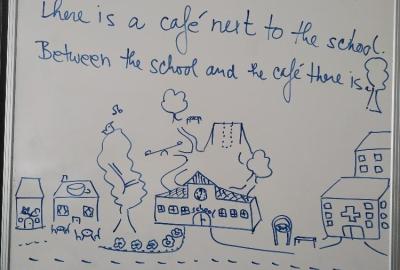 There is a café next to the school.
Between the school and the café there is a
school